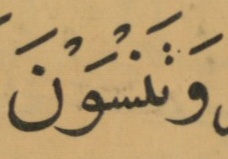 وَتَنْسَوْنَ